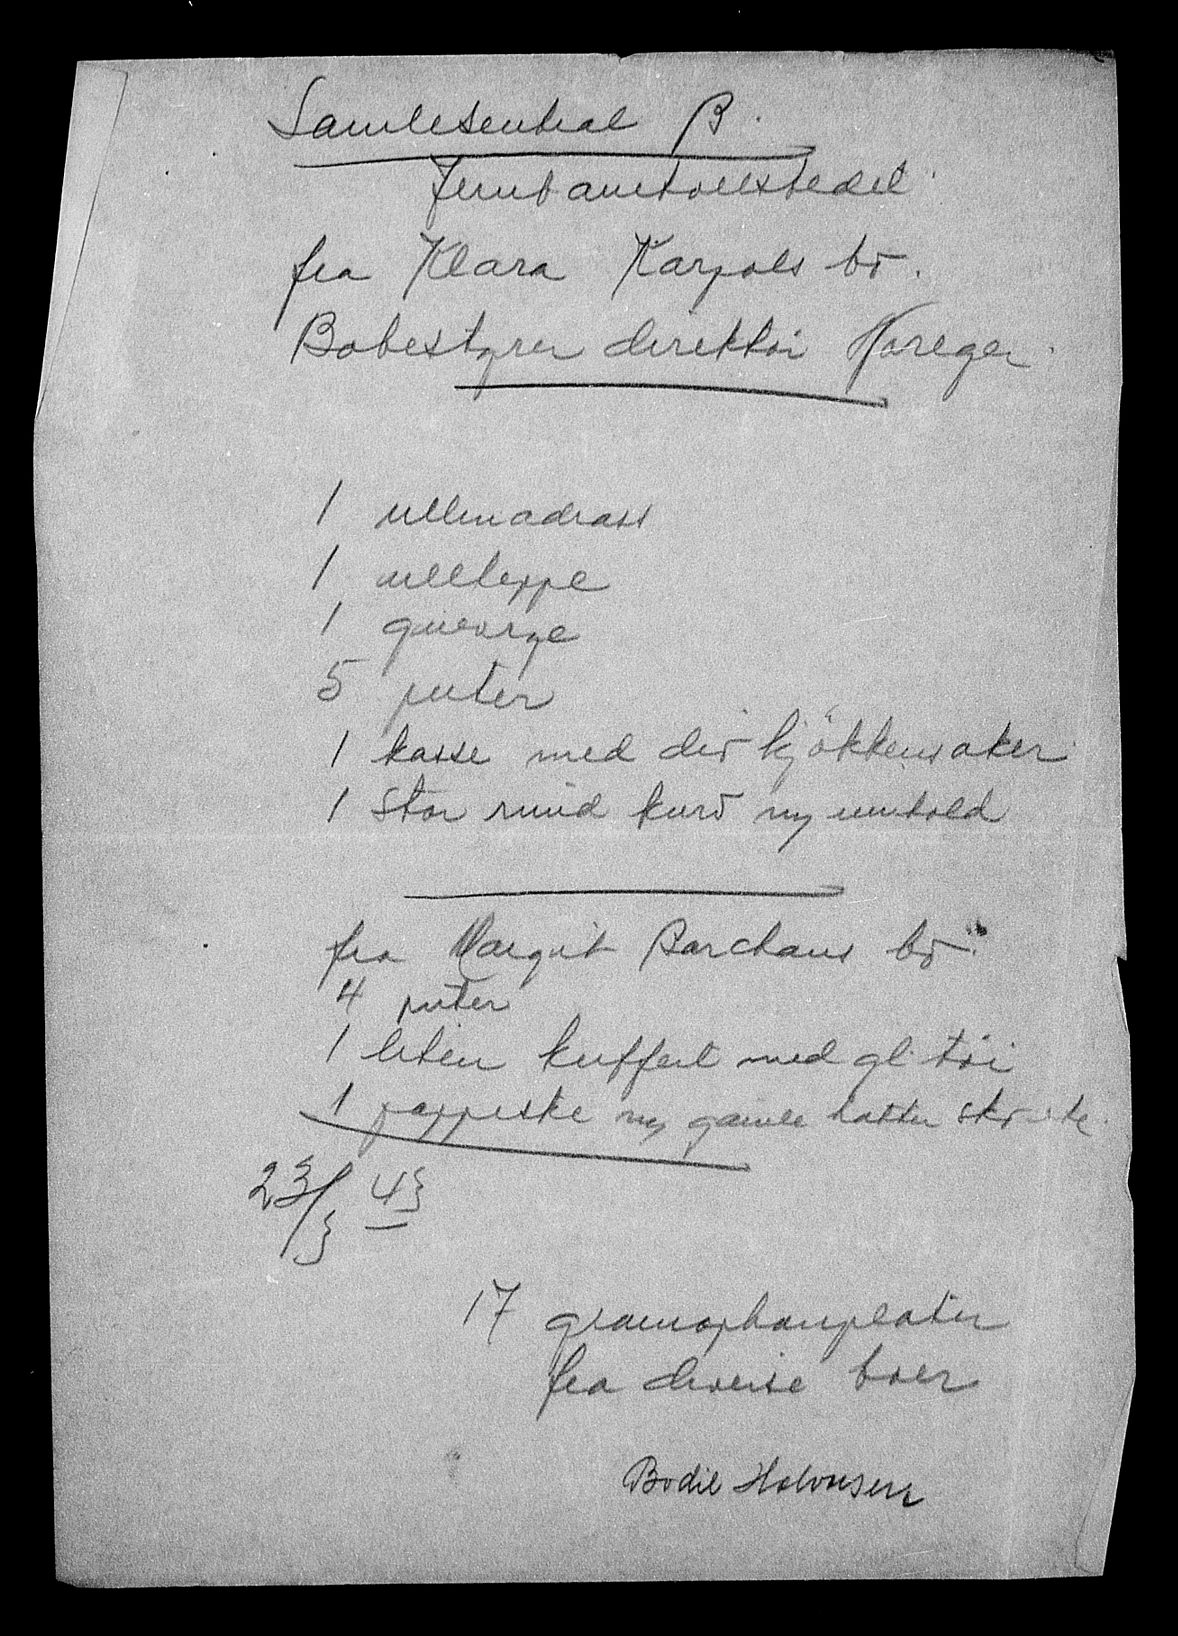 Samlesentral B.
Jernbanetollstedet
fra Klara Karpols bo.
Bobestyrer direktör Noreger
1 ullmadrass
1 ullteppe
1
5 puter
1 kasse med div kjökkensaker
1 stor rund kurv m/ innhold
fra Margit Barchans bo.
4 puter
1 liten kuffert med gl. töi
1 pappeske m/ gamle hatter sko
23/3 43
17 gramophonplater
fra diverse boer
Bodil Halvorsen